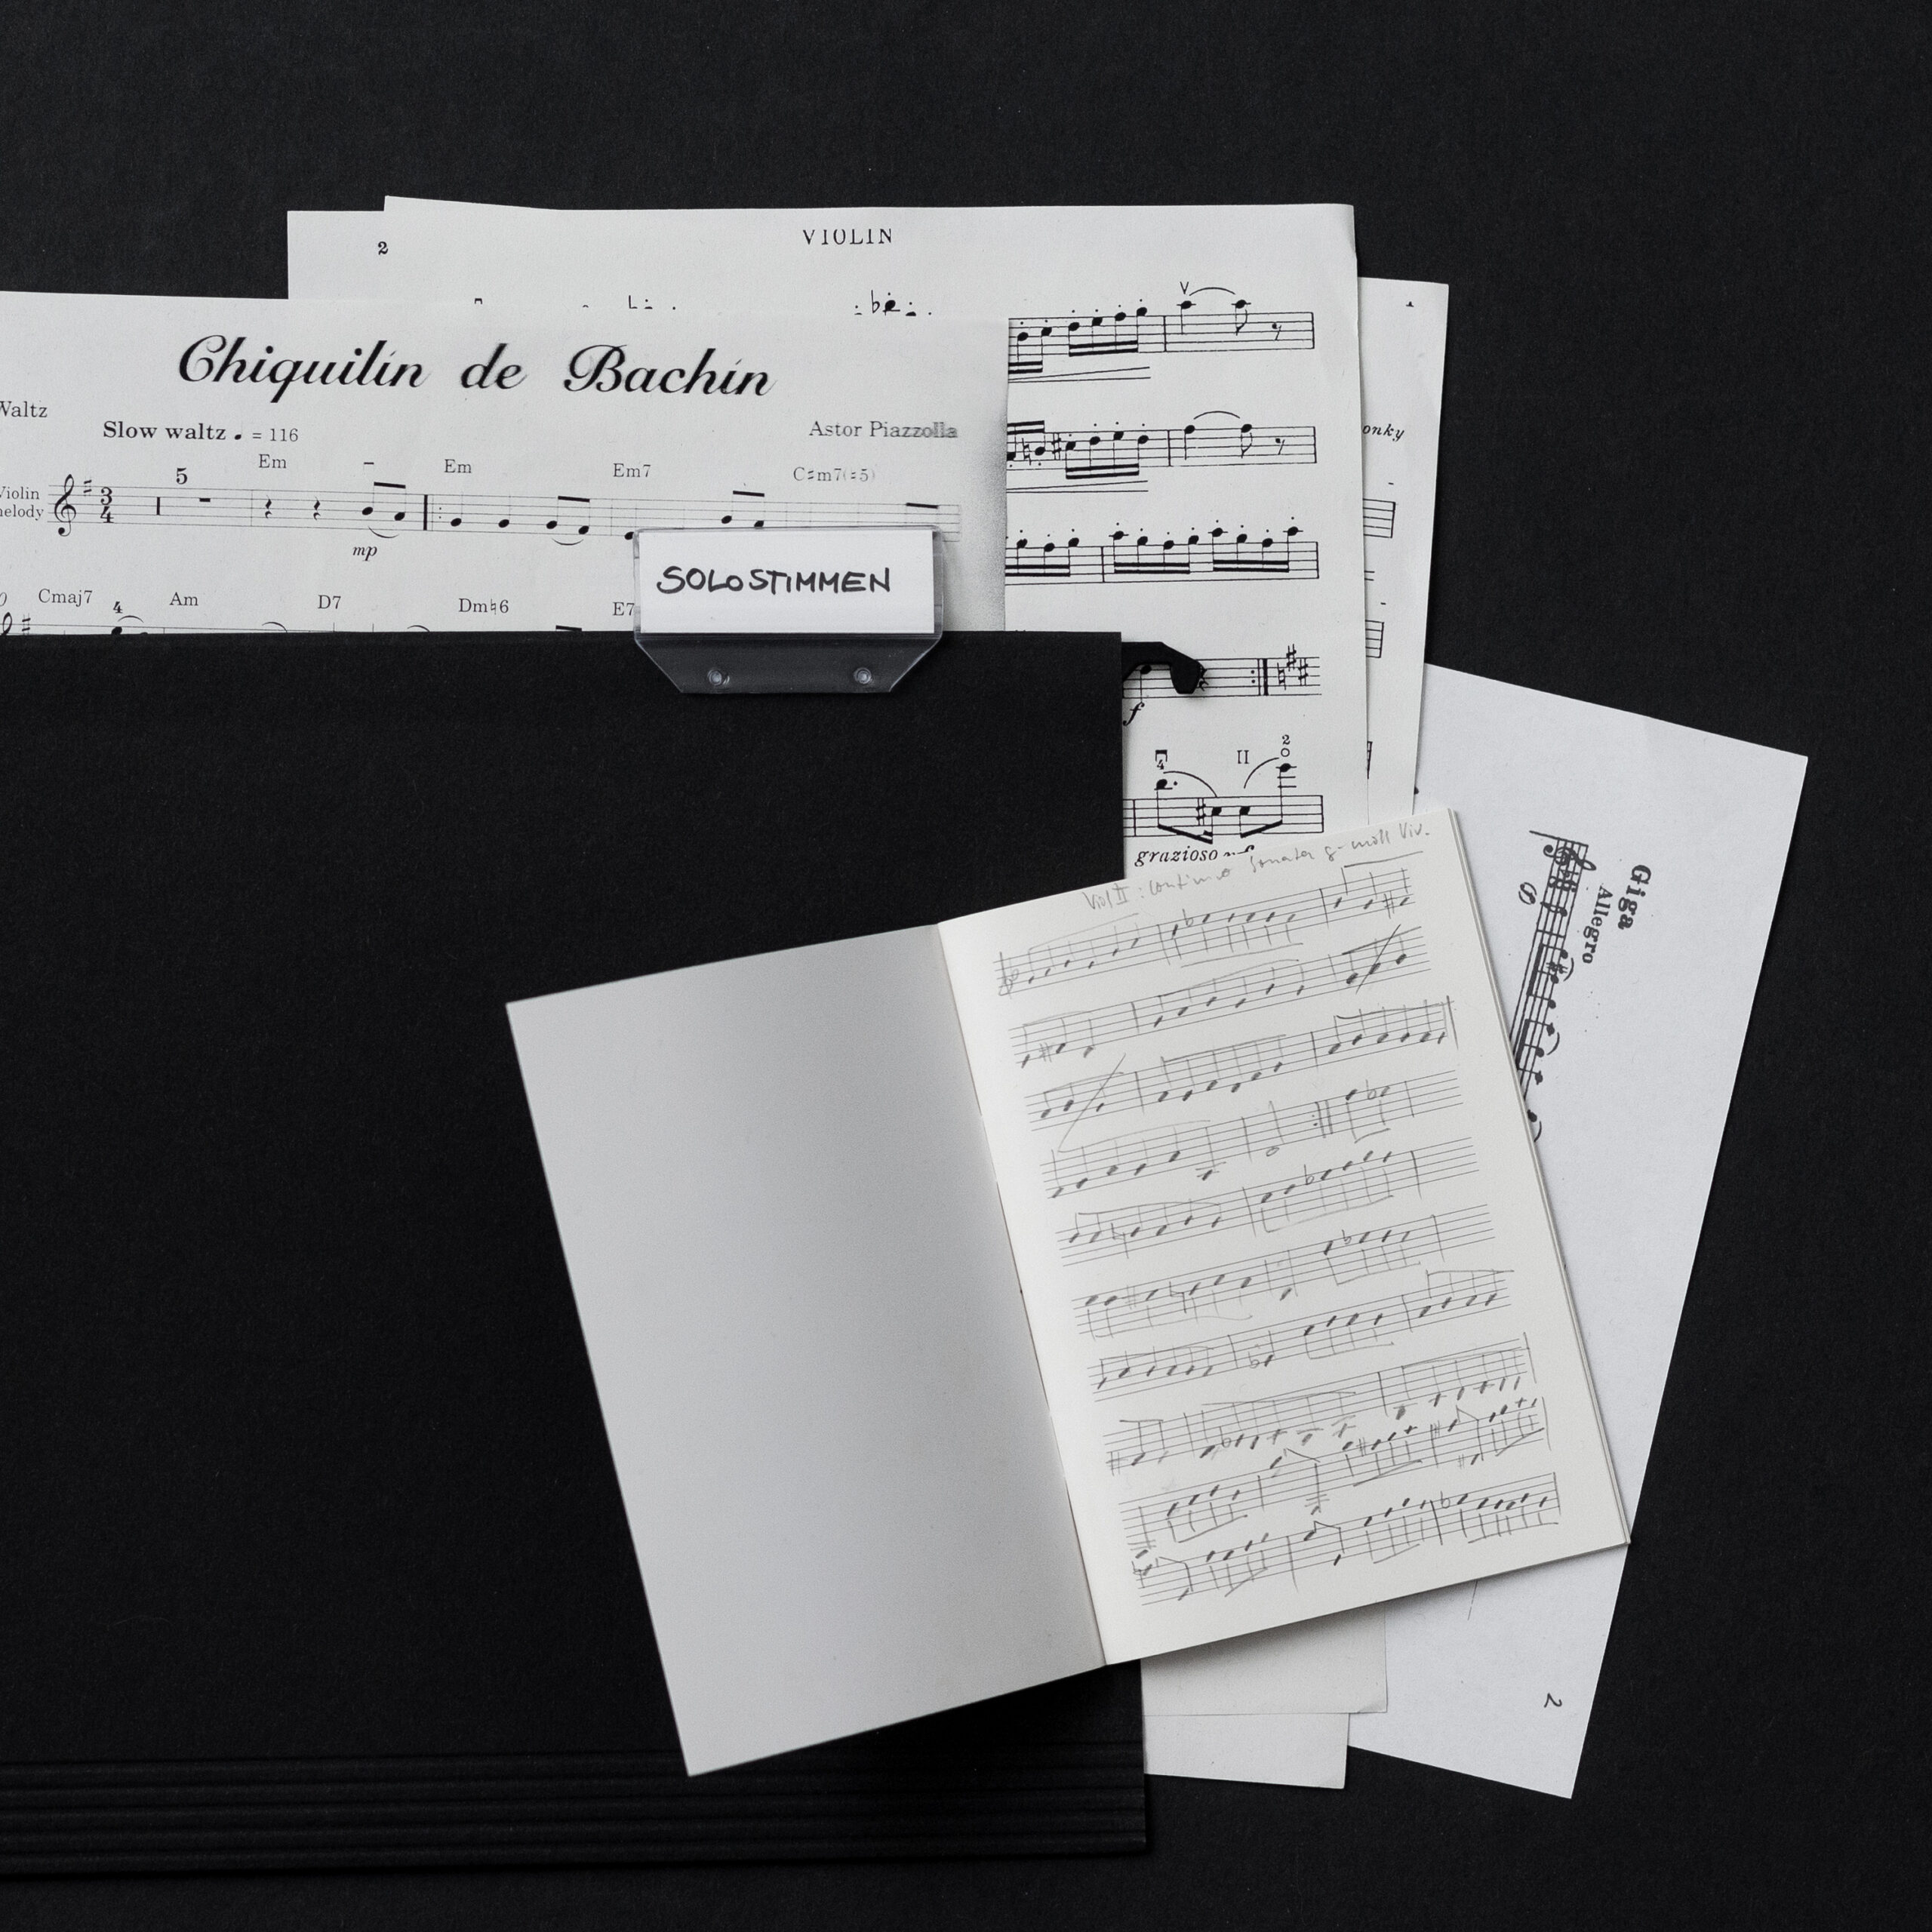 VIOLIN
2
Chiquilín de Bachín
Waltz
Slow waltz ♩ = 116
Astor Piazzolla
5 Em Em Em7 C♯m7(♭5)
Violin
melody
3
4
mp
Cmaj7 4 Am D7 Dm♮6 E7
SOLOSTIMMEN
onky
f
4 II 2
grazioso
Viol II : continuo Sonata g-moll Viv.
Giga
Allegro
2